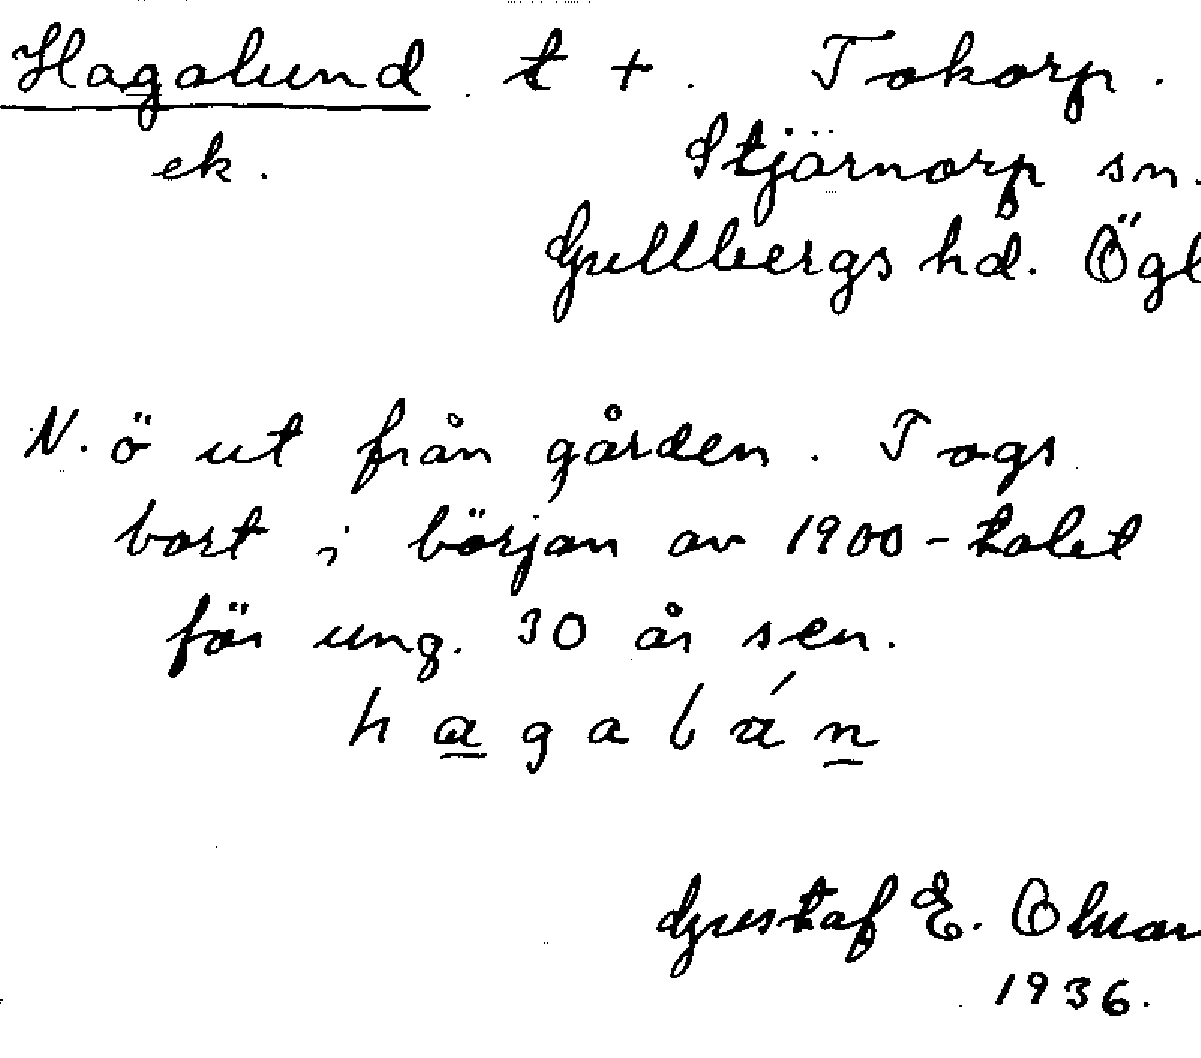 Hagalund t +. Tokorp.
ek. Stjärnorp sn.
Gullbergs hd. Ögl
N. ö ut från gården. Togs
bort i början av 1900-talet
för ung. 30 år sen.
hagalán
Gustaf E.
1936.